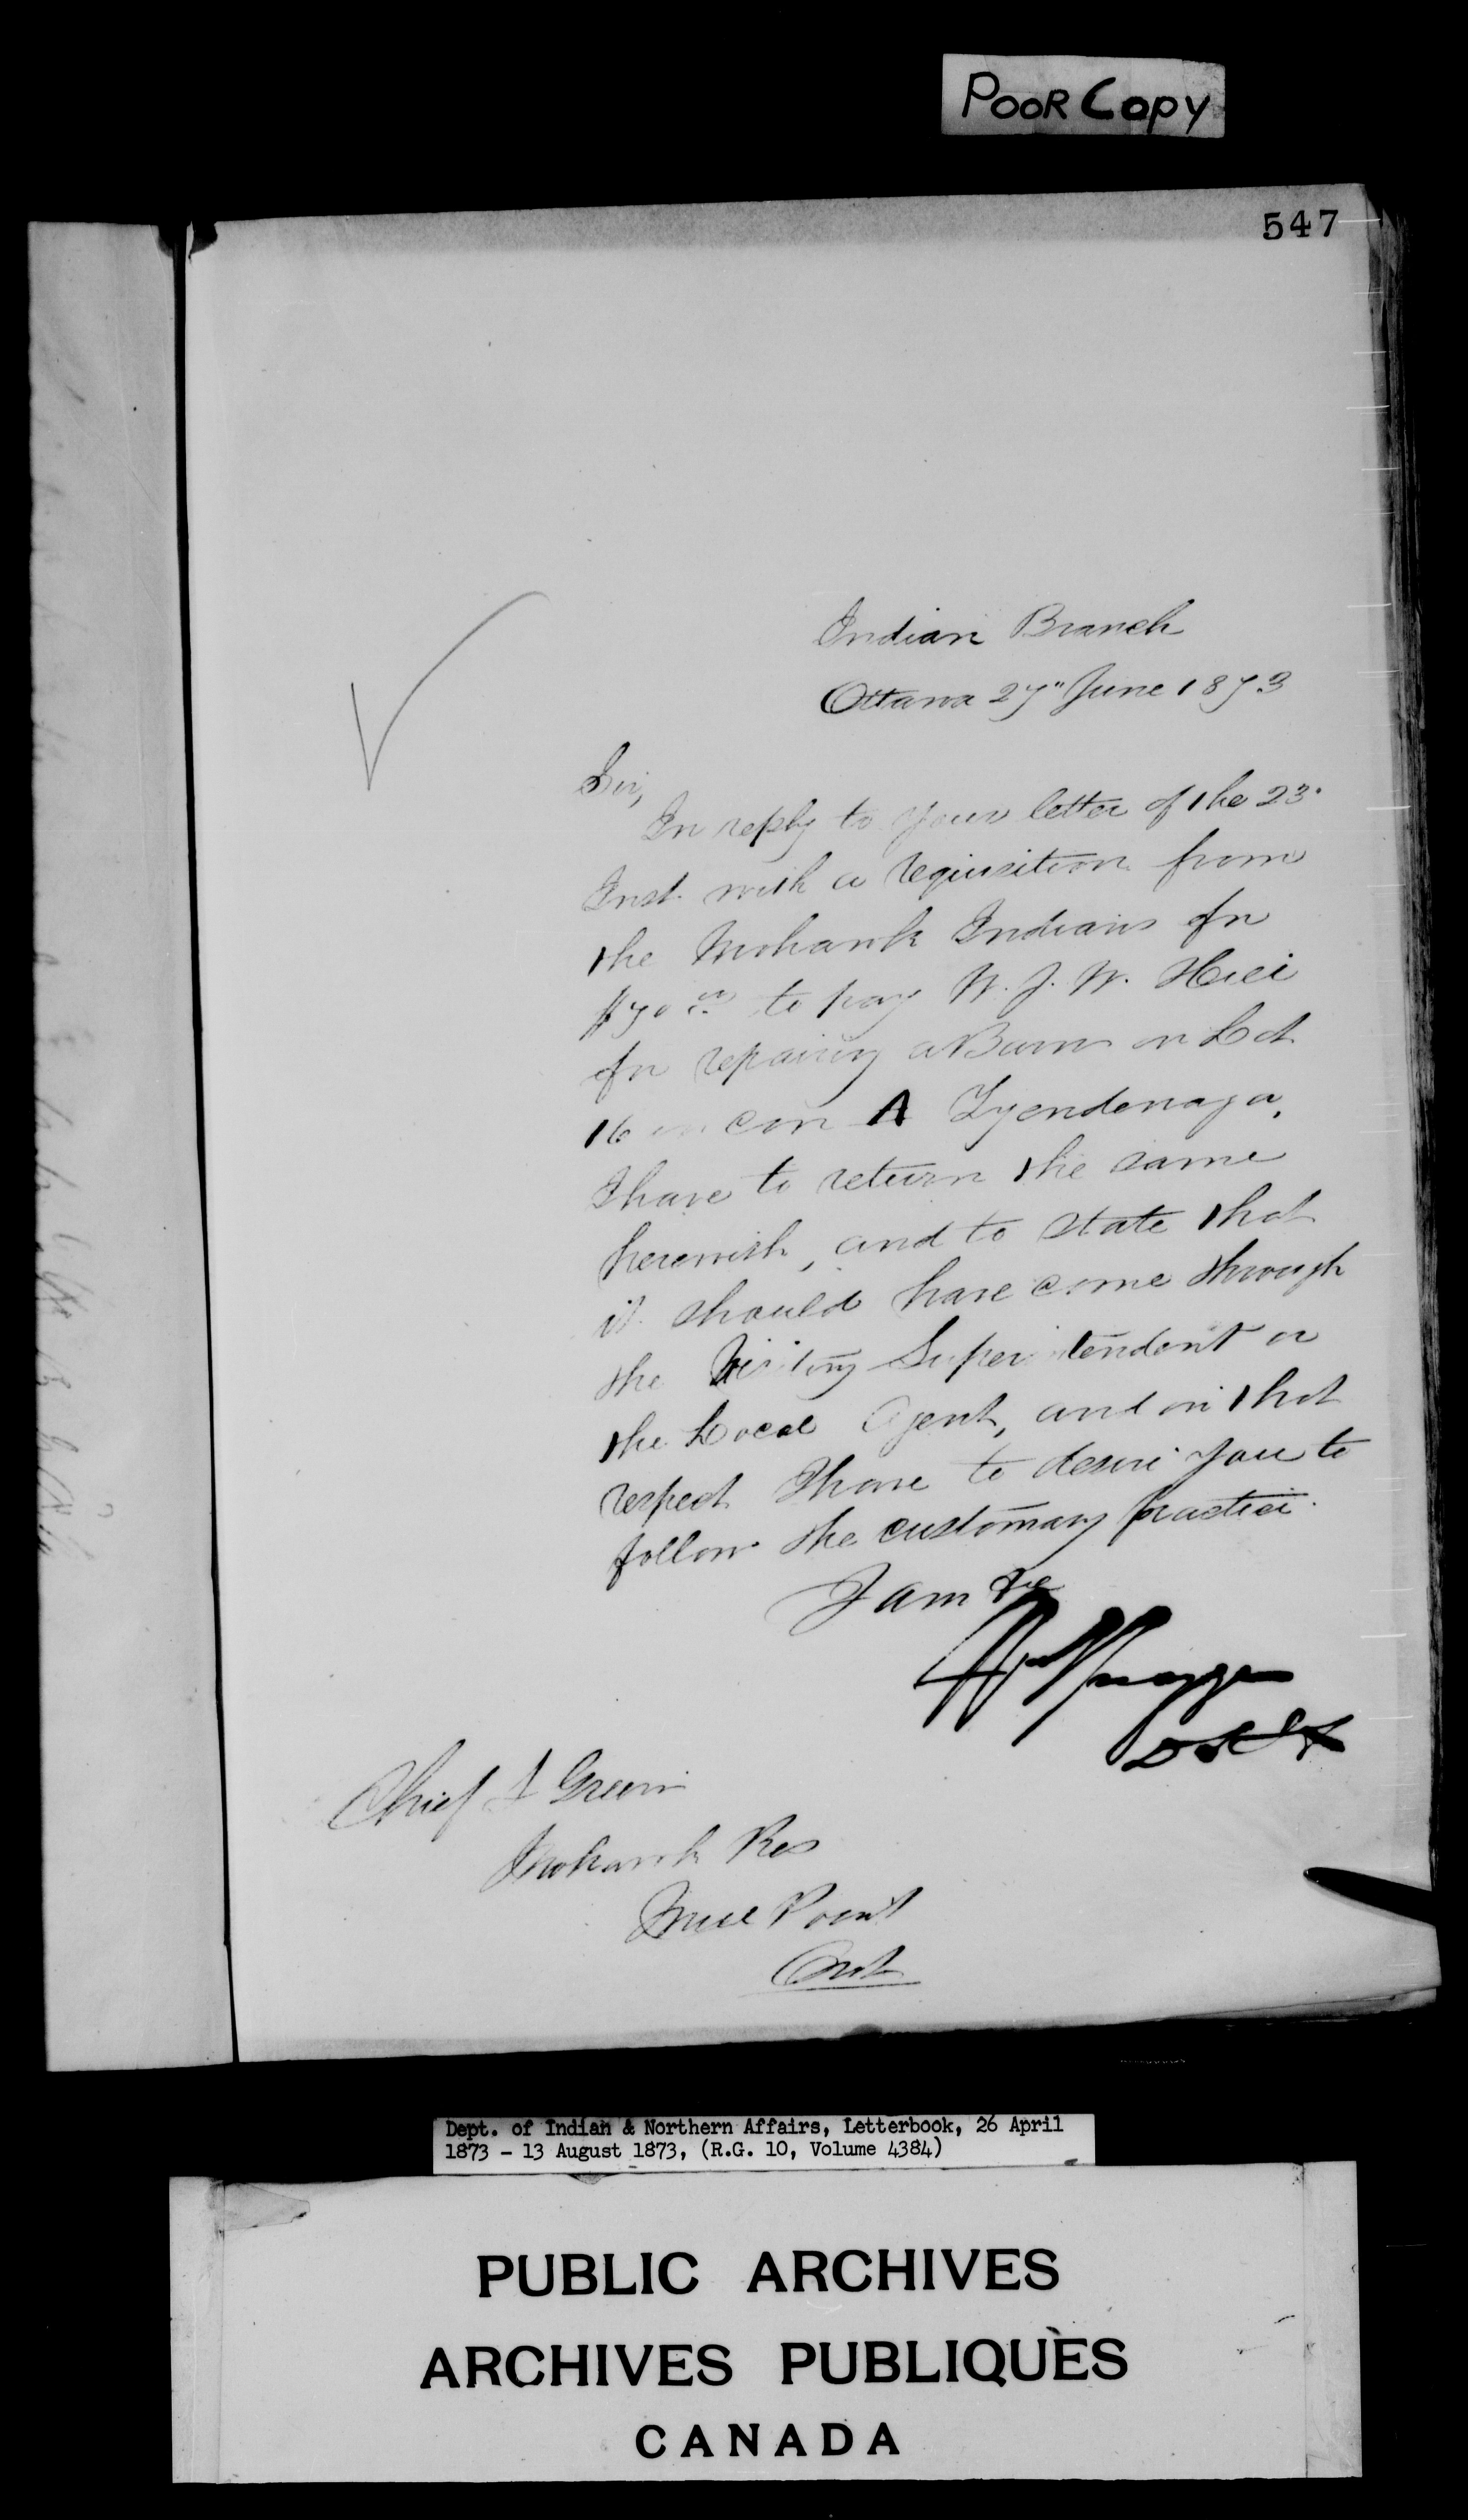 POOR Copy
547
Indian Branch
Ottawa 27" June 1873
Sir,
In reply to your letter of the 23.
Inst. with a requisition from
the Mohawk Indians for
$70 00 to pay W. J. W. Hill
for repairing a Barn on Lot
16 in con A Tyendenaga,
I have to return the same
herewith, and to state that
it should have come through
the Visiting Superintendent or
the Local Agent, and in that
respect I have to desire you to
follow the customary practice.
I am &c
Chief Green
Mohawk Res
Mill Point
Ont
Dept. of Indian & Northern Affairs, Letterbook, 26 April
1873 - 13 August 1873, (R.G. 10, Volume 4384)
PUBLIC ARCHIVES
ARCHIVES PUBLIQUES
CANADA